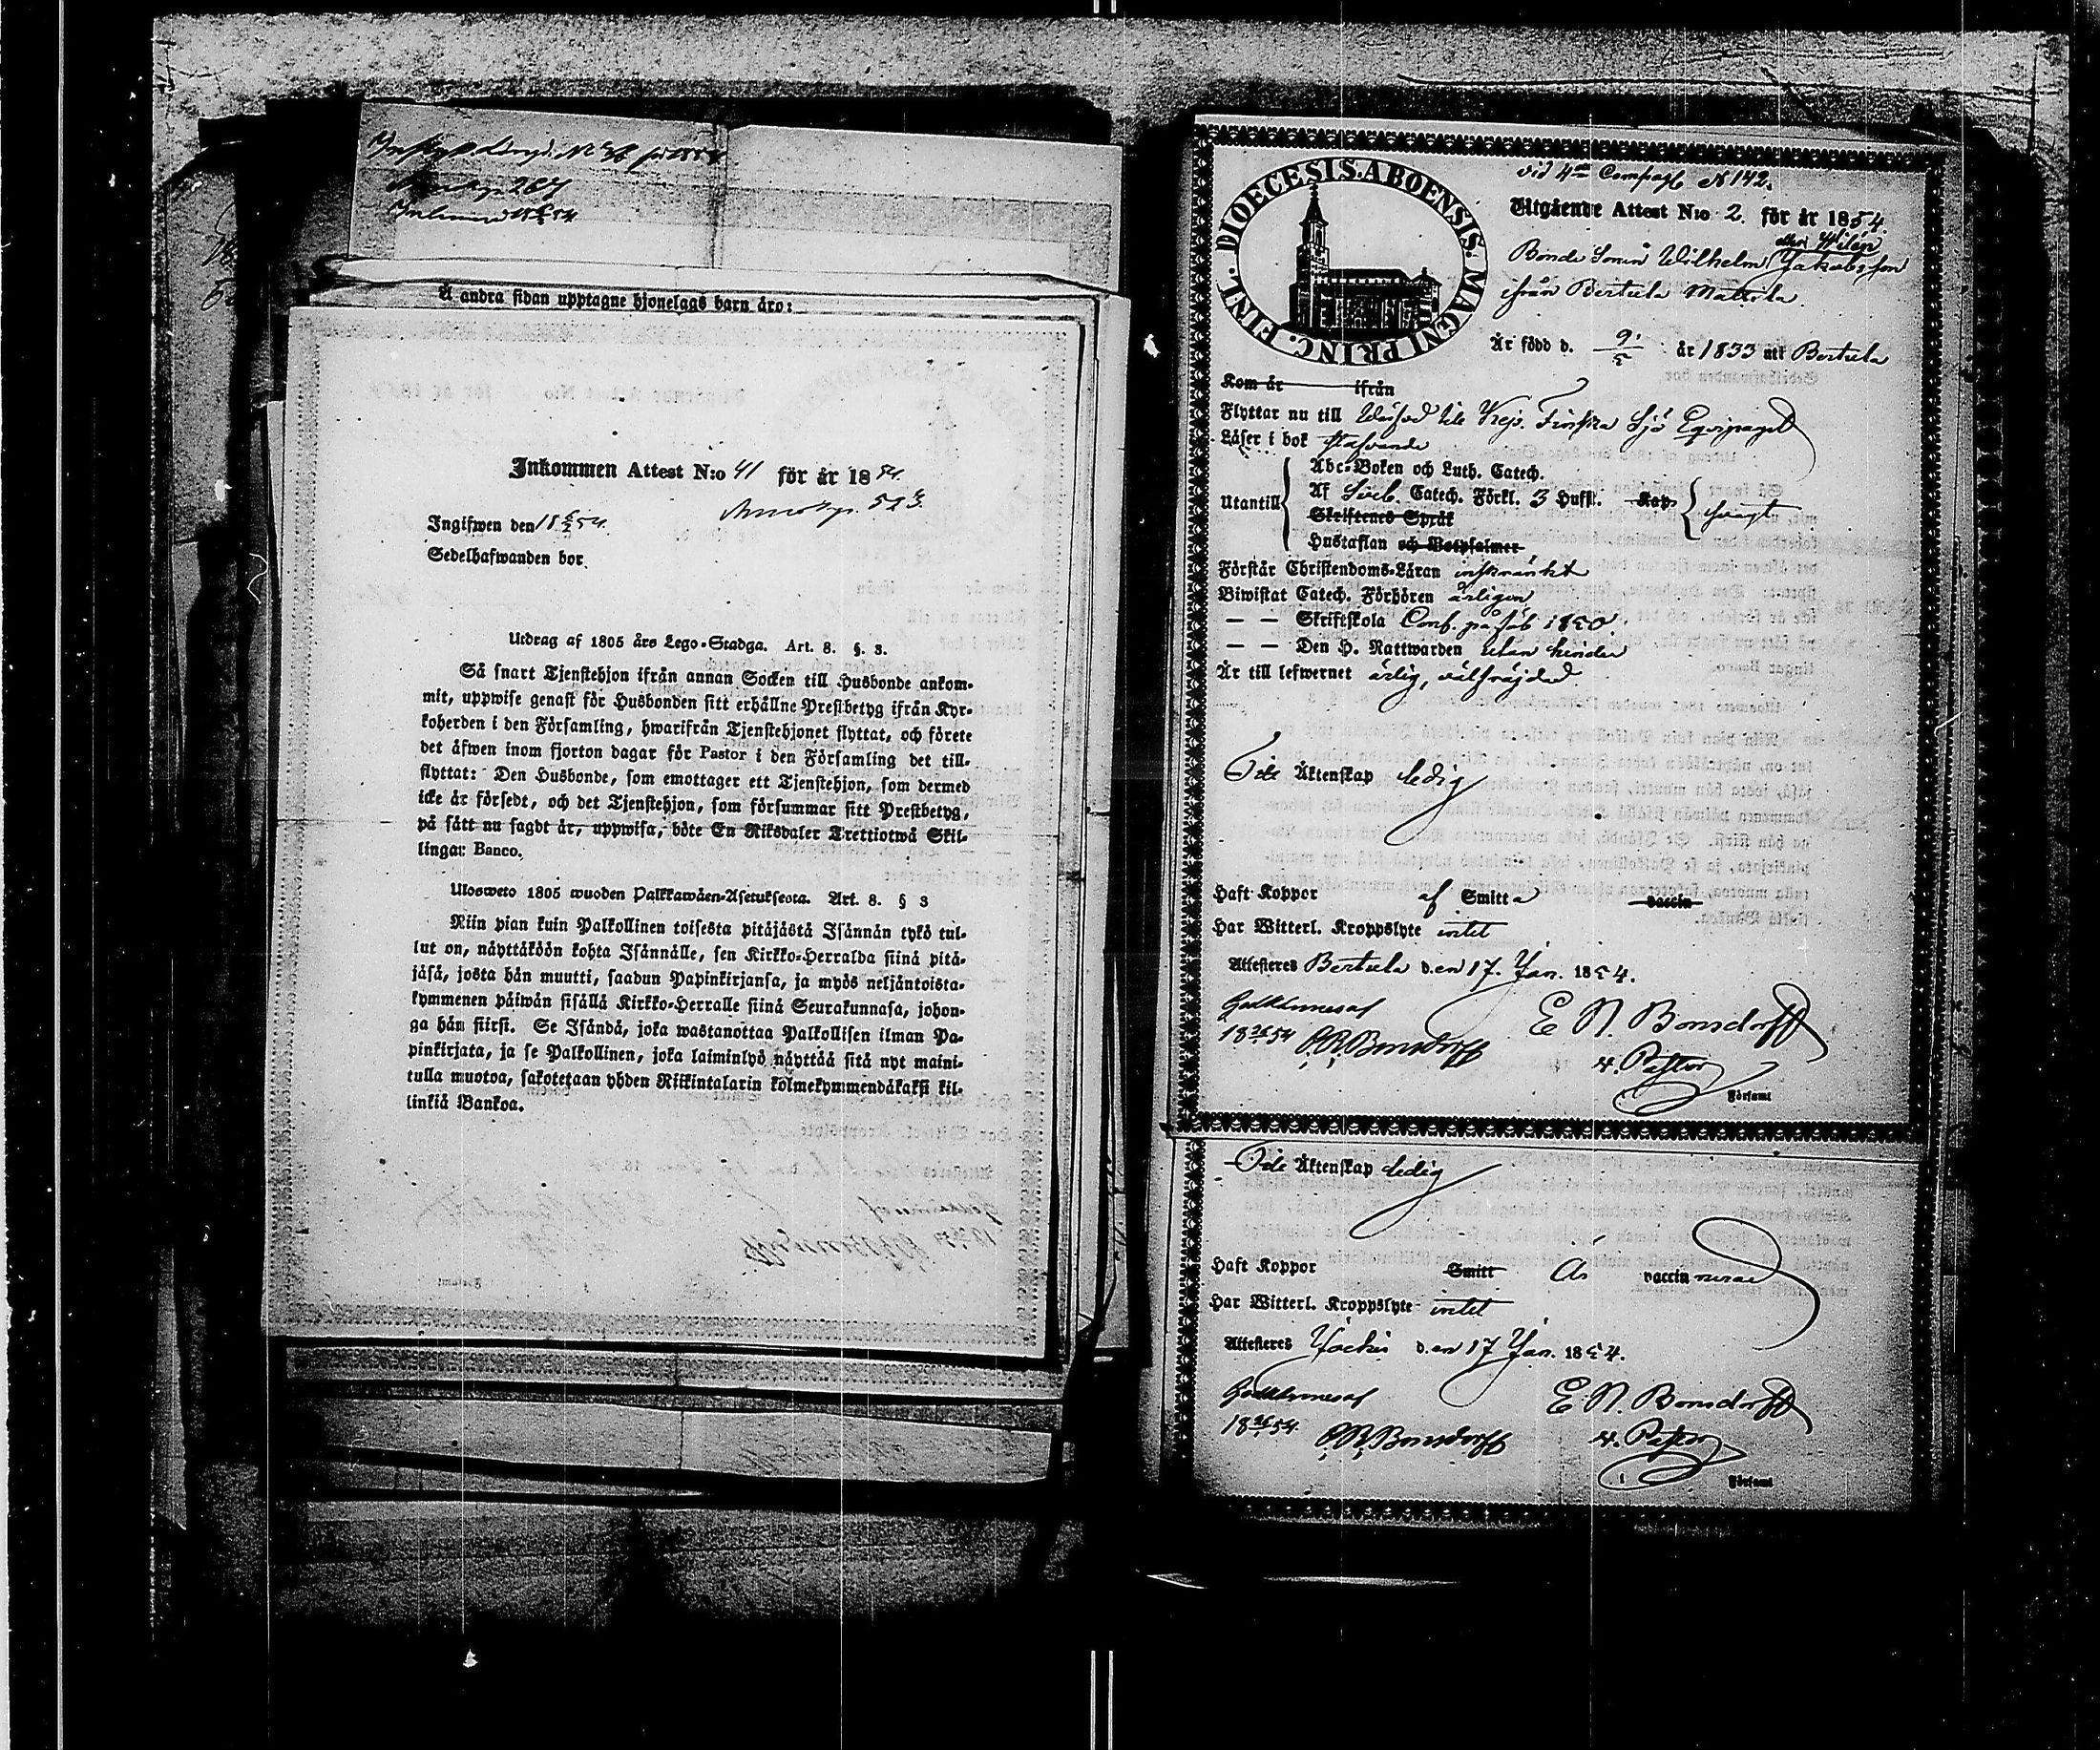 för 1854
Å andra sidan upptagne hjonelags barn äro:
Inkommen Attest N:o 41 för år 1854.
523.
Ingifwen den 18 5/2 54.
Sedelhafwanden bor
Utdrag af 1805 års Lego-Stadga. Art. 8. §. 3.
Så snart Tjenstehjon ifrån annan Socken till Husbonde ankom-
mit, uppwise genast för Husbonden sitt erhållne Prestbetyg ifrån Kyr-
koherden i den Församling, hwarifrån Tjenstehjonet flyttat, och förete
det äfwen inom fjorton dagar för Pastor i den Församling det till-
flyttat: Den Husbonde, som emottager ett Tjenstehjon, som dermed
icke är försedt, och det Tjenstehjon, som försummar sitt Prestbetyg,
på sätt nu sagdt är, uppwisa, böte En Riksdaler Trettiotwå Skil-
lingar Banco.
Ulosweto 1805 wuoden Palkkawäen-Asetuksesta. Art. 8. § 3
Niin pian kuin Palkollinen toisesta pitäjästä Isännän tykö tul-
lut on, näyttäköön kohta Isännälle, sen Kirkko-Herralda siinä pitä-
jäsä, josta hän muutti, saadun Papinkirjansa, ja myös neljäntoista-
kymmenen päiwän sisällä Kirkko-Herralle siinä Seurakunnasa, johon-
ga hän siirsi. Se Isändä, joka wastanottaa Palkollisen ilman Pa-
pinkirjata, ja se Palkollinen, joka laiminlyö näyttää sitä nyt maini-
tulla muotoa, sakotetaan yhden Riikintalarin kolmekymmendäkaksi kil-
linkiä Bankoa.
FINL. DIOECESIS. ABOENSIS. MAGNI PRINC.
vid 4de Compagt N 142.
Utgående Attest N:o 2. för år 1854.
eller Wilén
Bonde Sonen Wilhelm Jakobsson
ifrån Bertula Mattila.
Är född d. 9/5 år 1833 uti Bertula
Kom år ifrån
Flyttar nu till Kejs. Finska Sjö Equipaget
Läser i bok stafvande
Abc-Boken och Luth. Catech.
Utantill Af Sveb. Catech. Förkl. 3 Hufst. Kap. svagt
Skriftenes Språk
Hustaflan och Botpsalmer
Förstår Christendoms-Läran inskränkt
Biwistat Catech. Förhören årligen
— — Skriftskola Conf. på Job 1850.
— — Den H. Nattwarden utan hinder
Är till lefwernet ärlig, välfräjdad.
Till Äktenskap ledig
Haft Koppor af Smitta vaccin
Har Witterl. Kroppslyte intet
Attesteres Bertula den 17. Jan. 1854.
Godkännes af
18 26/1 54 E N. Bonsdorff
Bonsdorff v. Pastor
Församl
Till Äktenskap ledig
Haft Koppor Smitt Är vaccinerad
Har Witterl. Kroppslyte intet
Attesteres Jockis den 17 Jan. 1854.
Godkännes af E N. Bonsdorff
18 26/1 54. Bonsdorff v. Pastor
Församl